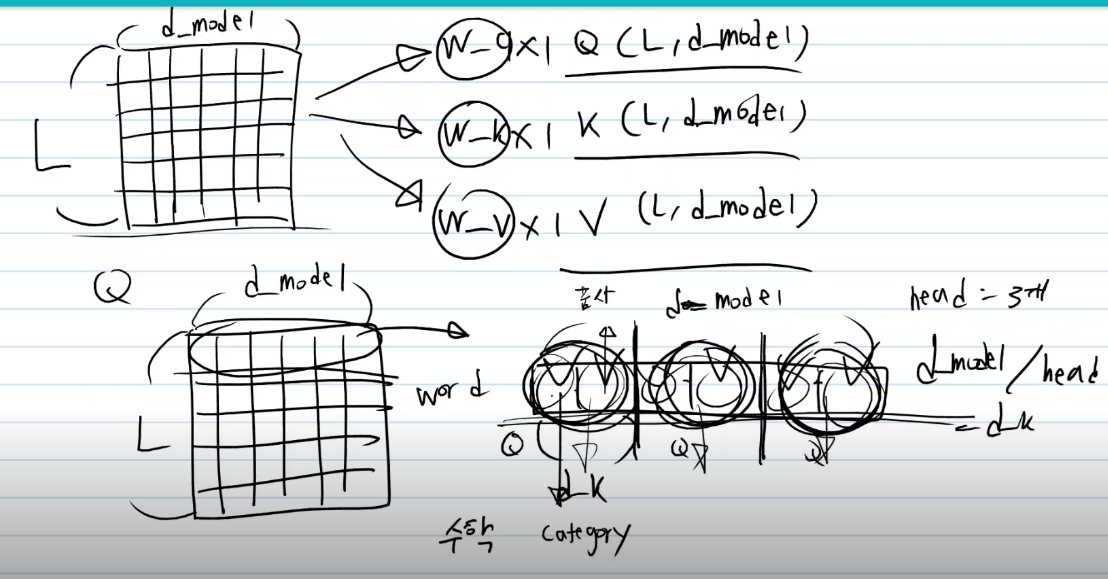 d_model
L
W_q x 1 Q (L, d_model)
W_k x 1 K (L, d_model)
W_v x 1 V (L, d_model)
Q
d_model
L
word
품사
d_model
head = 3개
d_model / head
= d_k
Q
Q
Q
d_k
수학
category